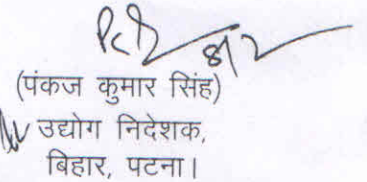 (पंकज कुमार सिंह)
उद्योग निदेशक,
बिहार, पटना।